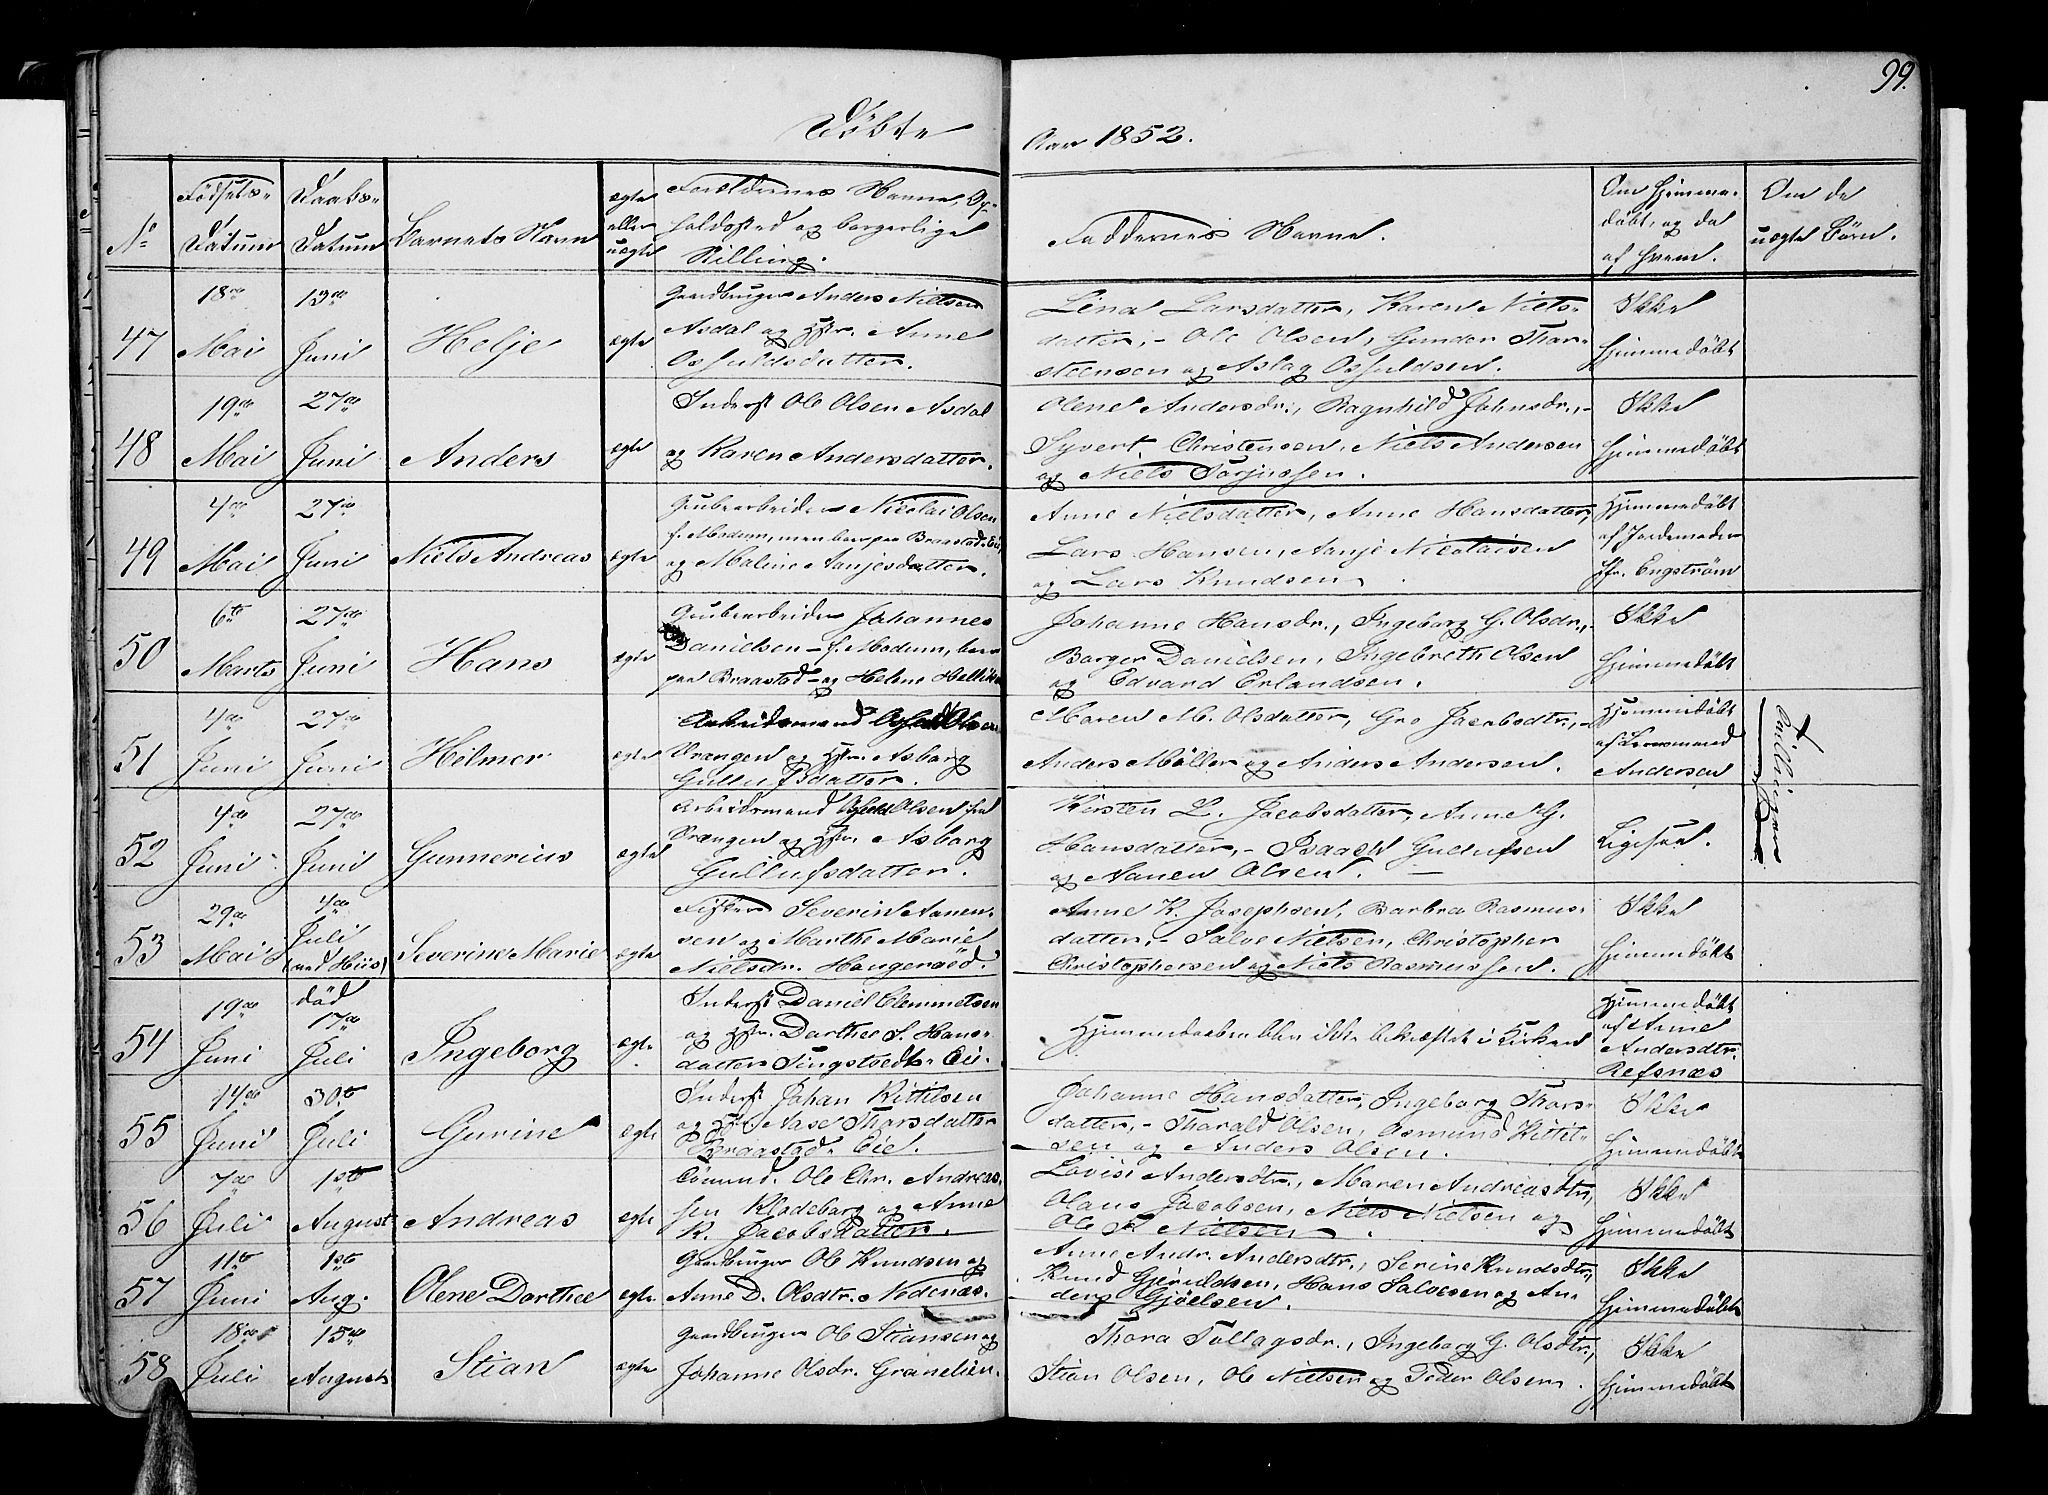 99.
Döbte
Aar 1852.
No
Födsels-
Datum
Daabs-
Datum
Barnets Navn
ægte
eller
uægte
Forældrenes Navne, Op-
holdssted og borgerlige
Stilling.
Faddernes Navne.
Om hjemme-
döbt, og da
af hvem.
Om de
uægte Börn.
47
18de
Mai
13de
Juni
Helje
ægte
Gaardbruger Anders Nielsen
Asdal og Hstr. Anne
Osfuldsdatter.
Lina Larsdatter, Karen Niels-
datter, - Ole Olsen, Gunder Thar-
steensen og Aslag Osfuldsen.
Ikke
hjemmedöbt
48
19de
Mai
27de
Juni
Anders
ægte
Inderst Ole Olsen Asdal
og Karen Andersdatter.
Olene Andersdr., Ragnhild Johnsdr., -
Syvert Christensen, Niels Andersen
og Niels Torjussen.
Ikke
hjemmedöbt
49
4de
Mai
27de
Juni
Niels Andreas
ægte
Grubearbeider Nicolai Olsen
f. Modum, men boer paa Braastad-Eie,
og Malene Aanjesdatter.
Anne Nielsdatter, Anne Hansdatter,
Lars Hansen, Aanje Nicolaisen
og Lars Knudsen.
Hjemmedöbt
af Jordemoder
Fr. Engström
50
6te
Marts
27de
Juni
Hans
ægte
Grubearbeider Johannes
Danielsen - f. Modum, boer
paa Braastad - og Helene
Johanne Hansdr., Ingeborg G. Olsdr., -
Borger Danielsen, Ingebreth Olsen
og Edvard Erlandsen.
Ikke
hjemmedöbt
51
4de
Juni
27de
Juni
Hilmer
ægte
Arbeidsmand Olsen
Vrangen og Hstr. Asborg
Gullufsdatter.
Maren M. Olsdatter, Gro Jacobsdtr., -
Anders Möller og Anders Andersen.
Hjemmedöbt
af Lensmand
Andersen
Tvillinger
52
4de
Juni
27de
Juni
Gunnerius
ægte
Arbeidsmand Olsen fra
Vrangen og Hstr. Asborg
Gullufsdatter.
Kirsten L. Jacobsdatter, Anne G.
Hansdatter, - Isaach Gullufsen
og Aanen Olsen.
Ligesaa.
53
29de
Mai
4de
Juli
(ved Hiis)
Severine Marie
ægte
Fisker Severin Aanen-
sen og Marthe Marie
Nielsdr. Haugeraed.
Anne K. Josephsen, Barbra Rasmus-
datter, - Salve Nielsen, Christopher
Christophersen og Niels Rasmussen.
Ikke
hjemmedöbt
54
19de
Juni
död
17de
Juli
Ingeborg
ægte
Inderst Daniel Clemmetsen
og Hstr. Darthee S. Hans-
datter Tingstvedt-Eie.
Hjemmedaaben blev ikke bekræftet i Kirken
Hjemmedöbt
af Anne
Andersdtr.
Refsnæs
55
14de
Juni
30te
Juli
Gurine
ægte
Inderst Johan Kittilsen
og Hstr. Aase Tharsdatter
Braastad-Eie.
Johanne Hansdatter, Ingeborg Thars-
datter, - Tharald Olsen, Osmund Kittil-
sen og Anders Olsen.
Ikke
hjemmedöbt
56
7de
Juli
1ste
August
Andreas
ægte
Tömmd. Ole Chr. Andreas-
sen Klodeborg og Anne
K. Jacobsdatter.
Lovise Andersdtr., Maren Andreasdtr.,
Olaus Jacobsen, Niels Nielsen og
Ole K. Nielsen.
Ikke
hjemmedöbt
57
11te
Juni
1ste
Aug.
Olene Darthee
ægte
Gaardbruger Ole Knudsen og
Anne D. Olsdtr. Nedenæs.
Anne Andr. Andersdtr., Serine Knudsdtr.,
Knud Gjeruldsen, Hans Salvesen og An-
ders Gjöelsen.
Ikke
hjemmedöbt
58
18de
Juli
15de
August
Stian
ægte
Gaardbruger Ole Stiansen og
Johanne Olsdr. Granelien.
Thora Tollagsdr., Ingeborg G. Olsdtr.,
Stian Olsen, Ole Nielsen og Peder Olsen.
Ikke
hjemmedöbt